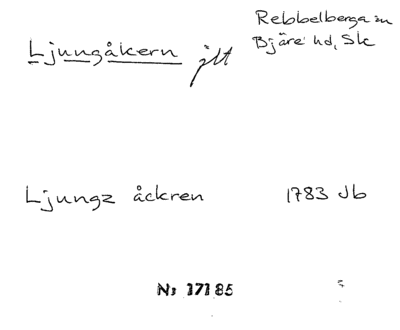 Rebbelberga sn
Ljungåkern jlt Bjäre hd, Sk
Ljungz åckren 1783 Jb
N: 17185